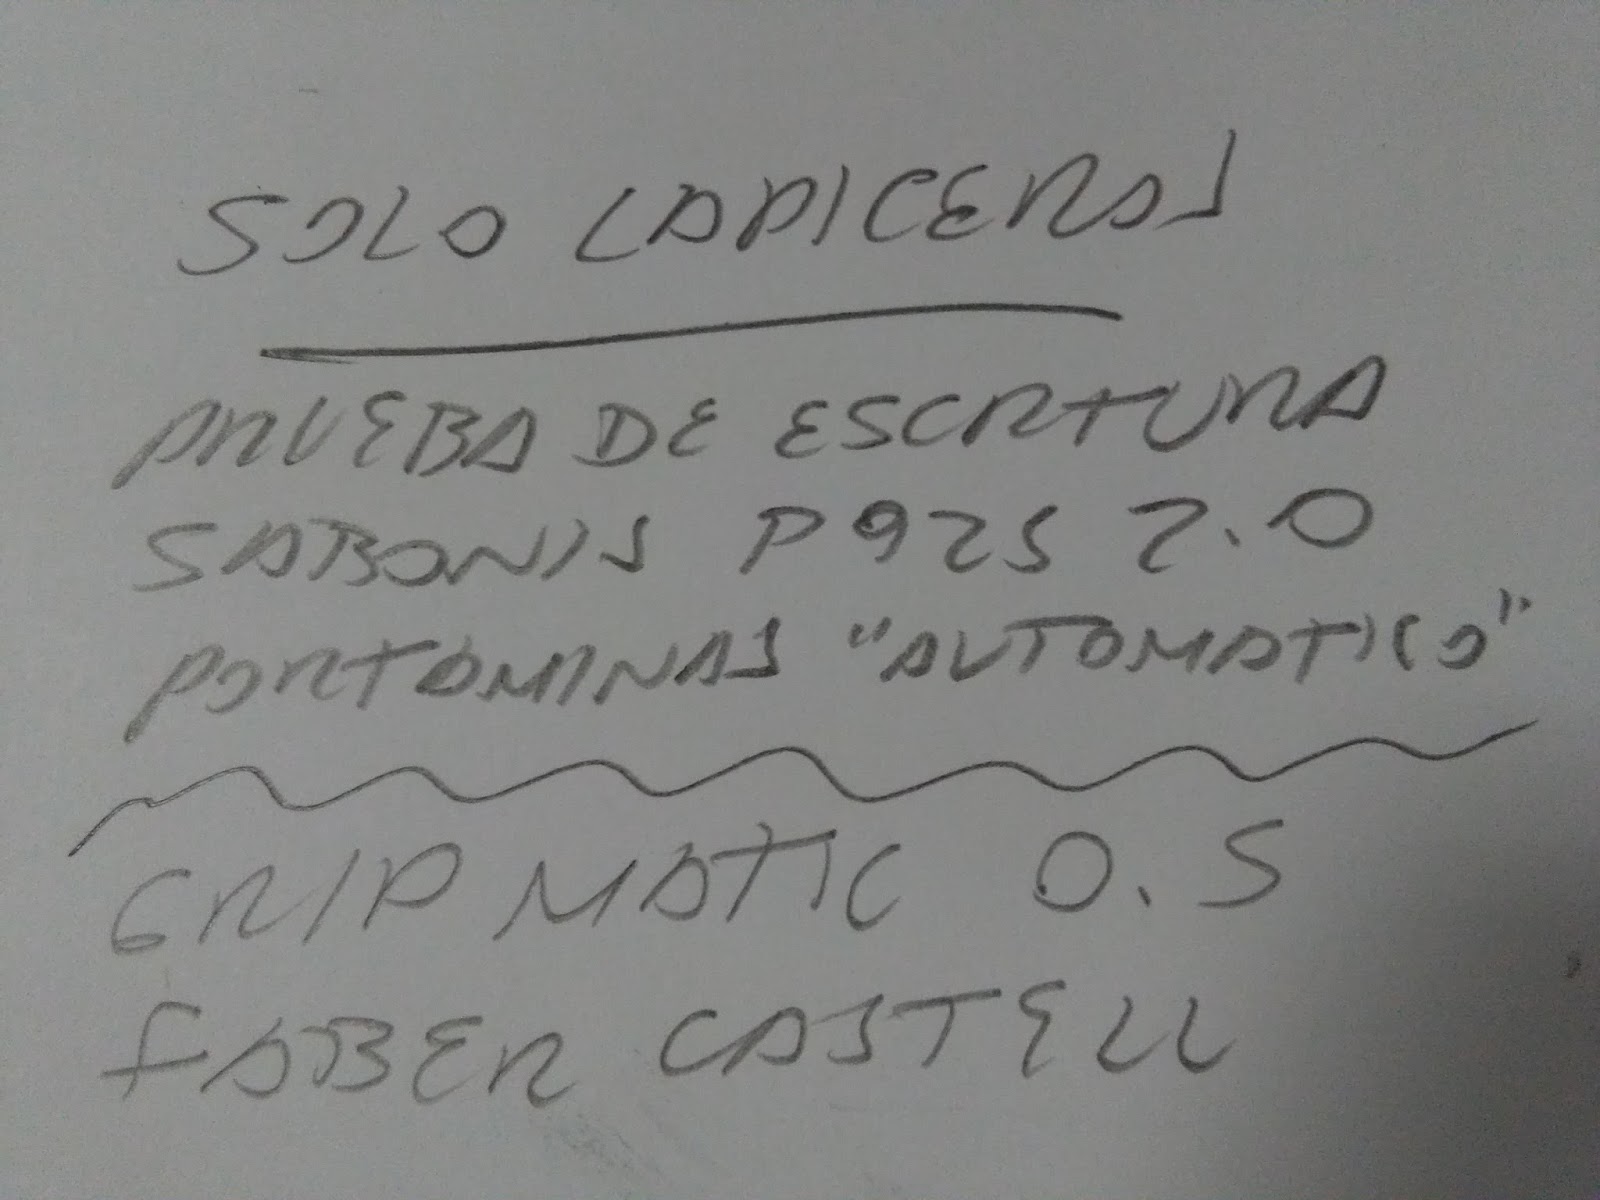 SOLO LAPICEROS
PRUEBA DE ESCRITURA
SABONIS P925 2.0
PORTAMINAS "AUTOMATICO"
GRIP MATIC 0.5
FABER CASTELL